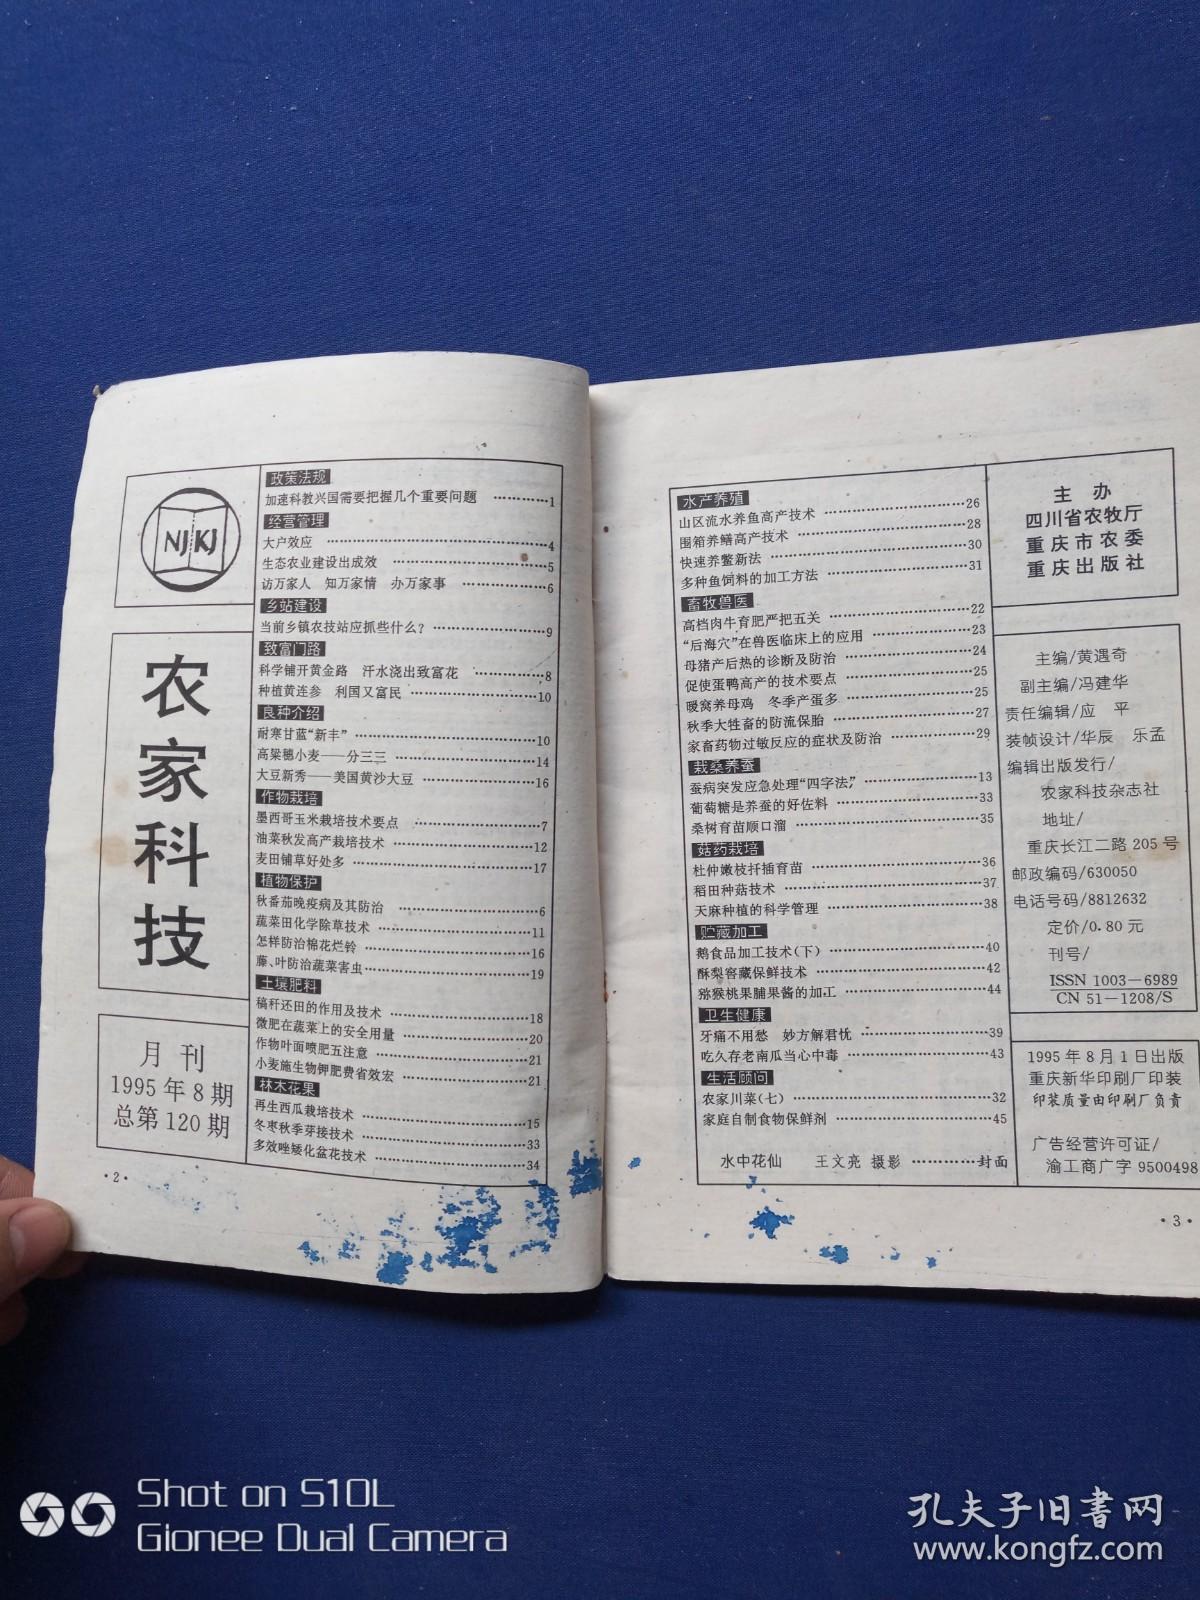 NJKJ
农家科技
月刊
1995年8期
总第120期
政策法规
加速科教兴国需要把握几个重要问题 …………1
经营管理
大户效应 …………4
生态农业建设出成效 …………5
访万家人 知万家情 办万家事 …………6
乡站建设
当前乡镇农技站应抓些什么？ …………9
致富门路
科学铺开黄金路 汗水浇出致富花 …………8
种植黄连参 利国又富民 …………10
良种介绍
耐寒甘蓝“新丰” …………10
高粱穗小麦——分三三 …………14
大豆新秀——美国黄沙大豆 …………16
作物栽培
墨西哥玉米栽培技术要点 …………7
油菜秋发高产栽培技术 …………12
麦田铺草好处多 …………17
植物保护
秋番茄晚疫病及其防治 …………6
蔬菜田化学除草技术 …………11
怎样防治棉花烂铃 …………16
藤、叶防治蔬菜害虫 …………19
土壤肥料
稿秆还田的作用及技术 …………18
微肥在蔬菜上的安全用量 …………20
作物叶面喷肥五注意 …………21
小麦施生物钾肥费省效宏 …………21
林木花果
再生西瓜栽培技术 …………15
冬枣秋季芽接技术 …………33
多效唑矮化盆花技术 …………34
·2·
水产养殖
山区流水养鱼高产技术 …………26
围箱养鳝高产技术 …………28
快速养鳖新法 …………30
多种鱼饲料的加工方法 …………31
畜牧兽医
高档肉牛育肥严把五关 …………22
“后海穴”在兽医临床上的应用 …………23
母猪产后热的诊断及防治 …………24
促使蛋鸭高产的技术要点 …………25
暖窝养母鸡 冬季产蛋多 …………25
秋季大牲畜的防流保胎 …………27
家畜药物过敏反应的症状及防治 …………29
栽桑养蚕
蚕病突发应急处理“四字法” …………13
葡萄糖是养蚕的好佐料 …………33
桑树育苗顺口溜 …………35
菇药栽培
杜仲嫩枝扦插育苗 …………36
稻田种菇技术 …………37
天麻种植的科学管理 …………38
贮藏加工
鹅食品加工技术(下) …………40
酥梨窖藏保鲜技术 …………42
猕猴桃果脯果酱的加工 …………44
卫生健康
牙痛不用愁 妙方解君忧 …………39
吃久存老南瓜当心中毒 …………43
生活顾问
农家川菜(七) …………32
家庭自制食物保鲜剂 …………45
水中花仙 王文亮 摄影 …………封面
主 办
四川省农牧厅
重庆市农委
重庆出版社
主编/黄遇奇
副主编/冯建华
责任编辑/应 平
装帧设计/华辰 乐孟
编辑出版发行/
农家科技杂志社
地址/
重庆长江二路205号
邮政编码/630050
电话号码/8812632
定价/0.80元
刊号/
ISSN 1003-6989
CN 51-1208/S
1995年8月1日出版
重庆新华印刷厂印装
印装质量由印刷厂负责
广告经营许可证/
渝工商广字9500498
·3·
Shot on S10L
Gionee Dual Camera
孔夫子旧书网
www.kongfz.com